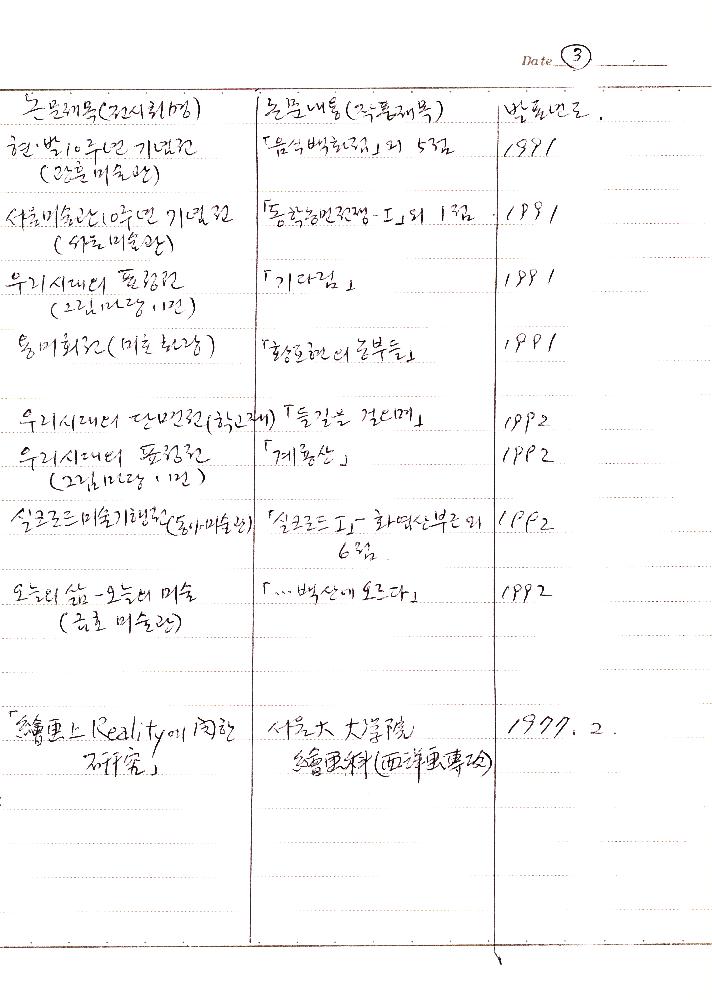 Date ③
논문제목(전시회명) 논문내용(작품제목) 발표년도.
현·발10주년 기념전 「음식백화점」외 5점 1991
(관훈미술관)
서울미술관10주년 기념전 「동학농민전쟁-I」외 1점 1991
(서울미술관)
우리시대의 표정전 「기다림」 1991
(그림마당·민)
동미회전(미호화랑) 「황포현의 농부들」 1991
우리시대의 단면전(학고재) 「들길을 걸으며」 1992
우리시대의 표정전 「계룡산」 1992
(그림마당·민)
실크로드미술기행전(동아미술관) 「실크로드 I」- 화염산부근 외 1992
6점
오늘의 삶-오늘의 미술 「…백산에 오르다」 1992
(금호 미술관)
「繪画上 Reality에 関한 서울大 大学院 1977. 2.
研究」 繪画科(西洋画專攻)